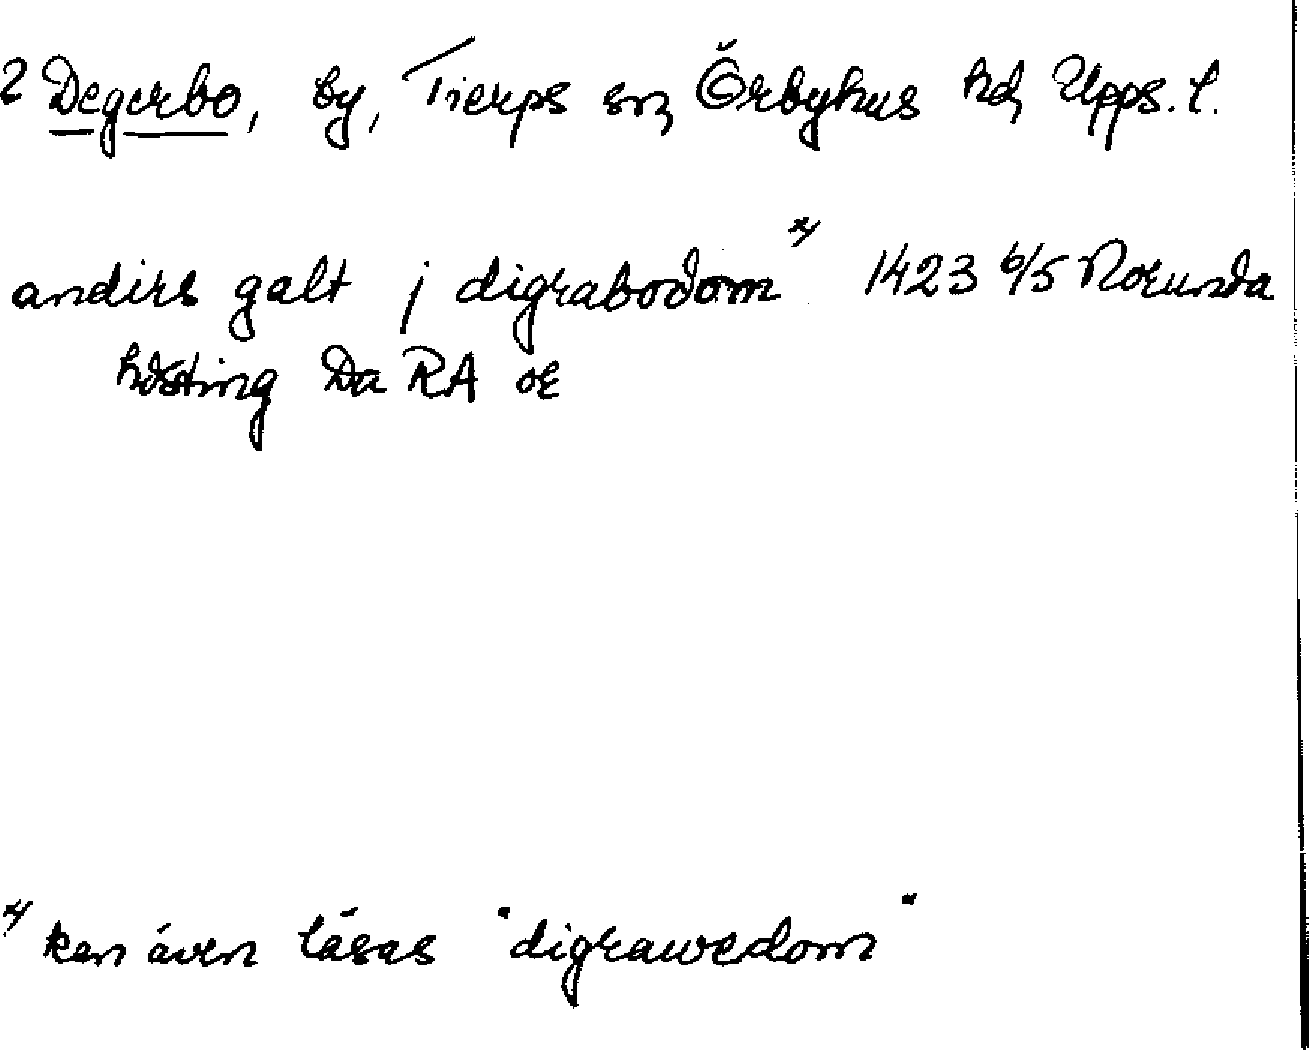 2 Degerbo, by, Tierps sn, Örbyhus hd, Upps. l.
andirs galt j digrabodom x) 1423 6/5 Norunda
hösting Da RA or
x) kan även läsas "digrawedom"